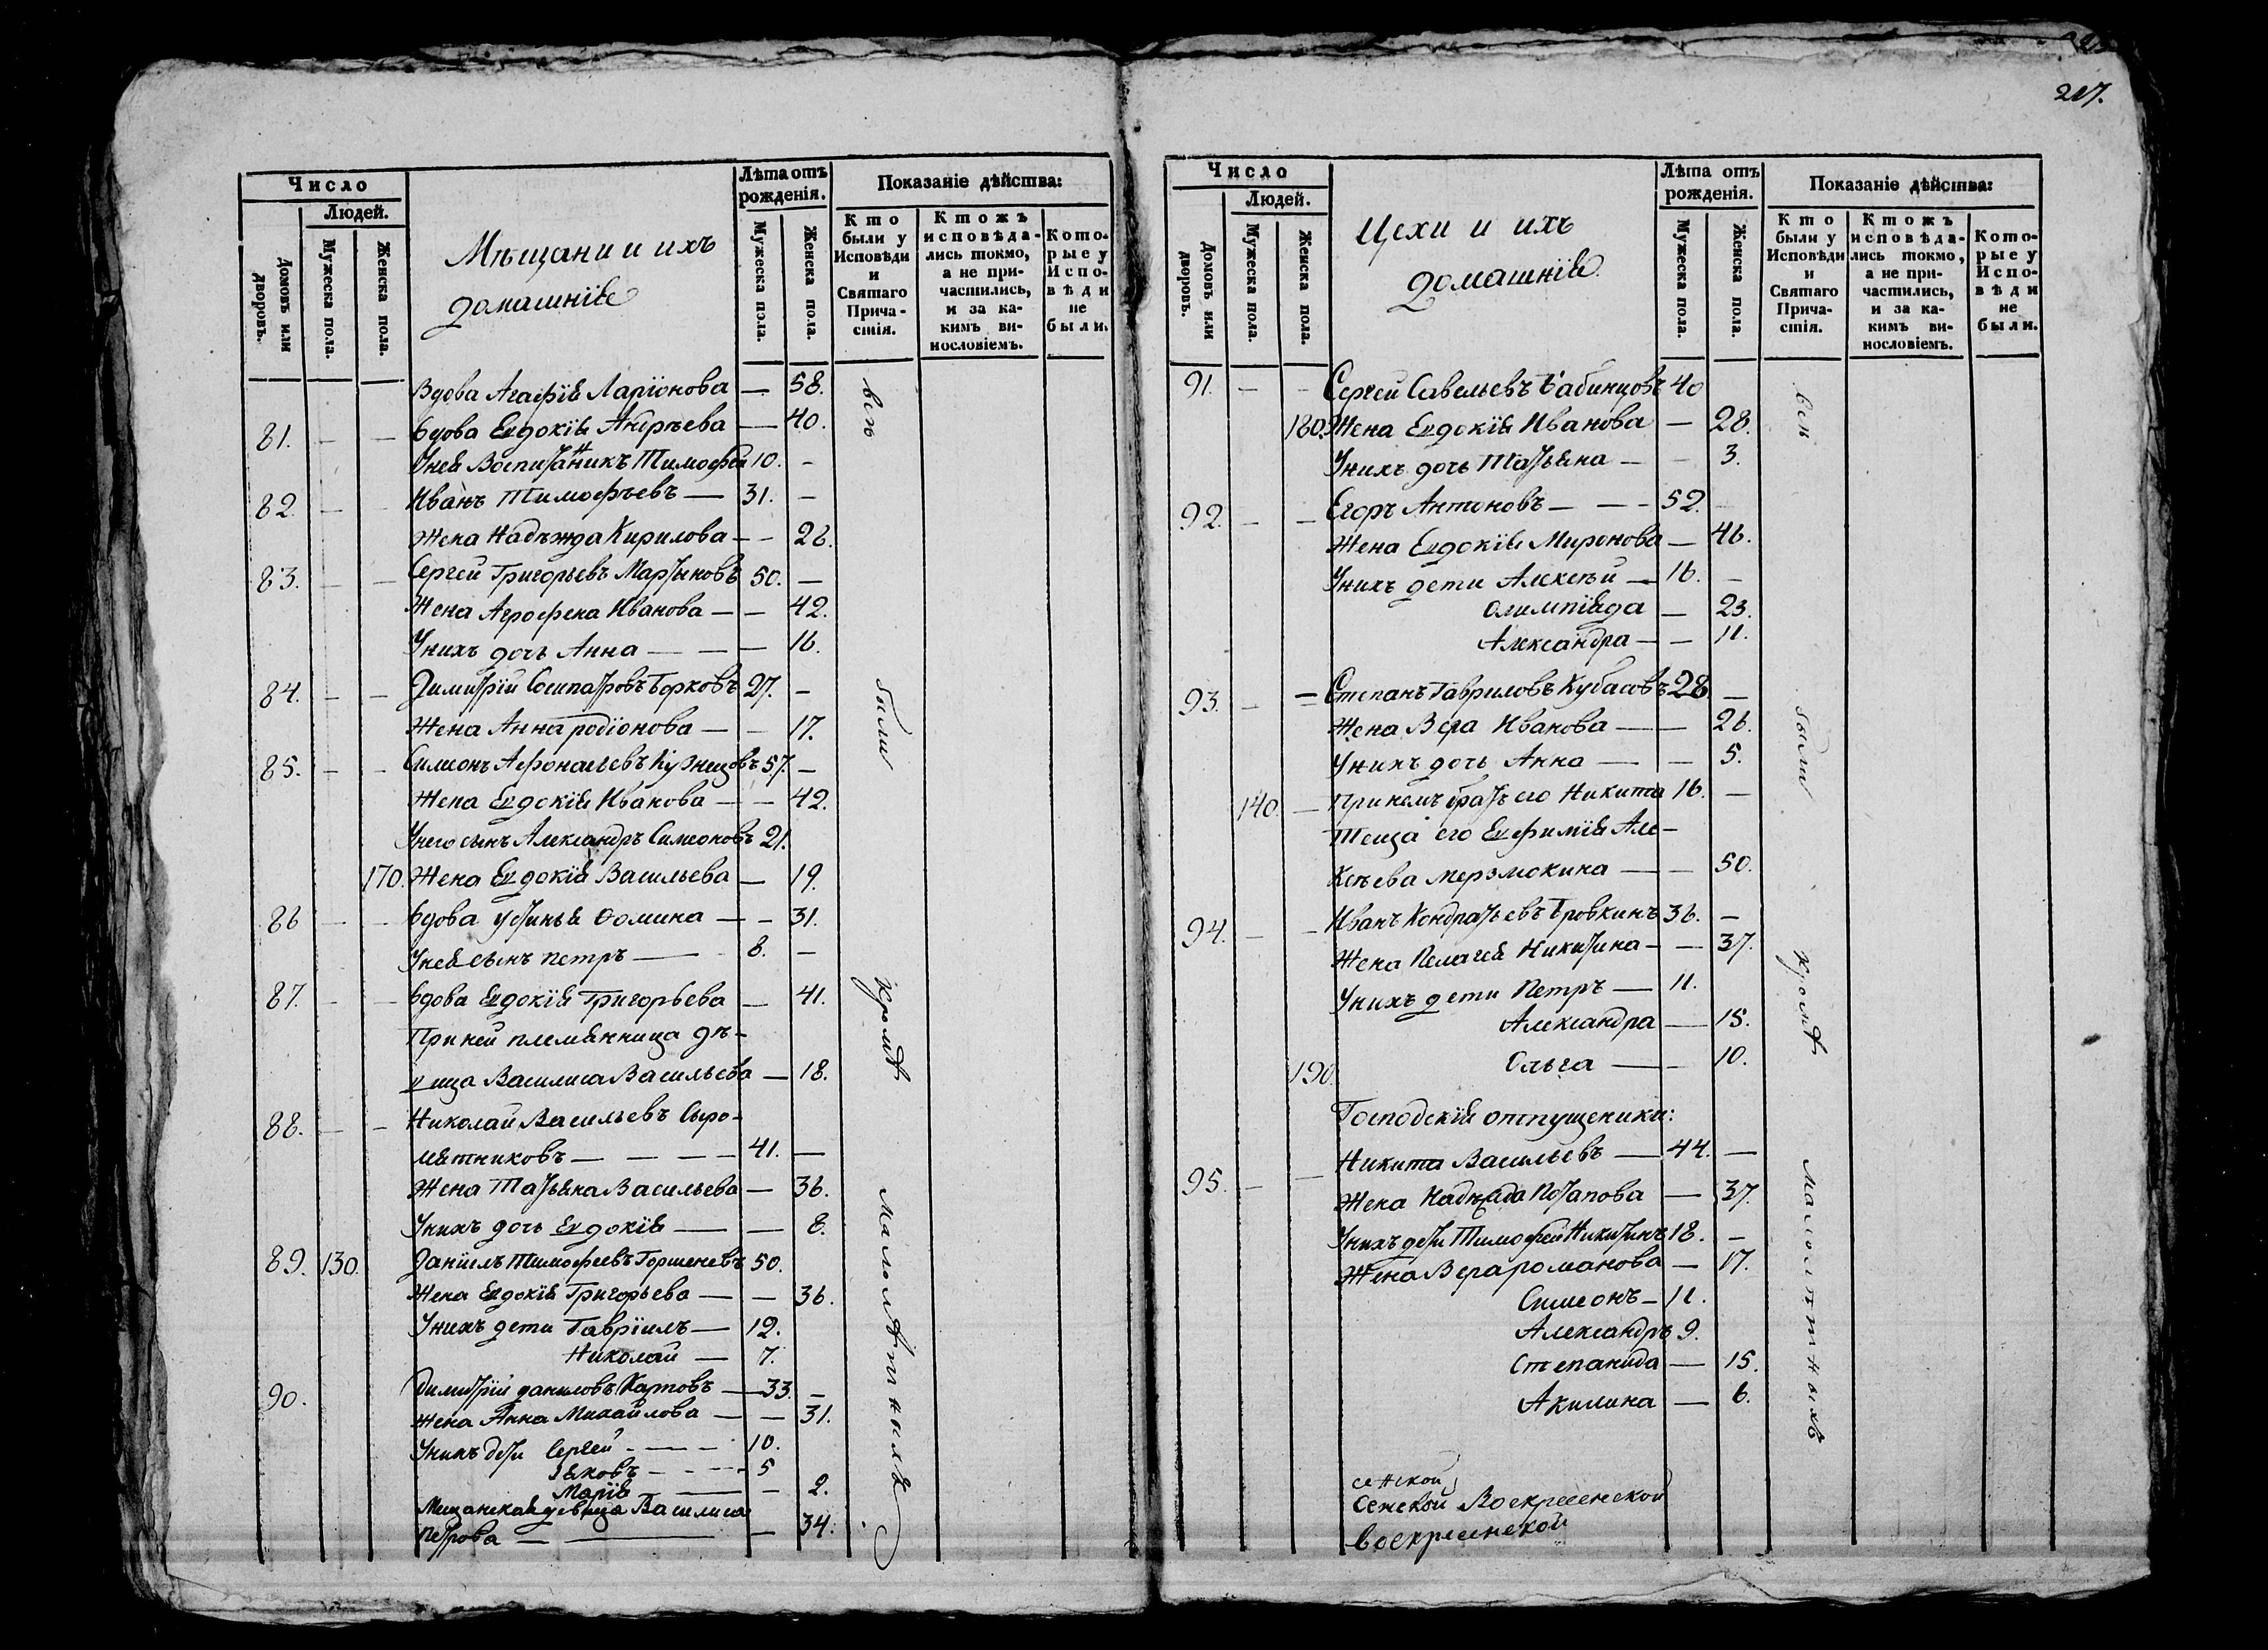 217.
Число
Людей.
Домовъ или дворовъ.
Мужеска пола.
Женска пола.
Мѣщани и ихъ
домашнїе
Лѣта отъ рожденія.
Мужеска пола.
Женска пола.
Показаніе дѣйства:
Кто были у Исповѣди и Святаго Причастія.
Ктожъ исповѣдались токмо, а не причастились, и за какимъ винословіемъ.
Которые у Исповѣди не были.
Вдова Агафїя Ларїонова — 58.
81. — — вдова Евдокїя Андрѣева — 40.
Унея Воспитанникъ Тимофей 10. —
82. — — Иванъ Тимофѣевъ — 31. —
Жена Надѣжда Кирилова — — 26.
83. — — Сергей Григорьевъ Мартыновъ 50. —
Жена Агрофена Иванова — — 42.
Унихъ дочь Анна — — — 16.
84. — — Димитрїй Сосипатровъ Борковъ 27. —
Жена Анна родїонова — — 17.
85. — — Симеонъ Афонасьевъ Кузнецовъ 57. —
Жена Евдокїя Иванова — — 42.
Унего сынъ Александръ Симеоновъ 21.
170. Жена Евдокїя Васильева — 19.
86 — — вдова Устинья Ѳомина — — 31.
Унея сынъ петръ — 8. —
87. — — вдова Евдокїя Григорьева — 41.
При ней племянница дѣ-
вица Василиса Васильева — 18.
88. — — Николай Васильевъ Сыро-
мятниковъ — — — — 41. —
Жена Татьяна Васильева — 36.
Унихъ дочь Евдокїя — — 8.
89. 130. Данїилъ Тимофеевъ Горшеневъ 50.
Жена Евдокїя Григорьева — — 36.
Унихъ дети Гаврїилъ — 12.
Николай — 7.
90. Димитрїй даниловъ Карповъ — 33. —
жена Анна Михайлова — — 31.
Унихъ дети Сергей - — — 10.
Яковъ — - — - 5
Марїя — — 2.
Мещанская девица Василиса
Петрова — — — 34.
всѣ
были
кромѣ
Малолѣтныхъ
Число
Людей.
Домовъ или дворовъ.
Мужеска пола.
Женска пола.
Цехи и ихъ
домашнїе
Лѣта отъ рожденія.
Мужеска пола.
Женска пола.
Показаніе дѣйства:
Кто были у Исповѣди и Святаго Причастія.
Ктожъ исповѣдались токмо, а не причастились, и за какимъ винословіемъ.
Которые у Исповѣди не были.
91. — — Сергей Савельевъ Бабинцовъ 40
180. Жена Евдокїя Иванова — 28.
Унихъ дочь Татьяна — — 3.
92. — — Егоръ Антоновъ — — - 52. —
Жена Евдокїя Миронова — 46.
Унихъ дети Алексѣй — 16. —
Олимпїяда — 23.
Александра — — 11.
93. — — Степанъ Гавриловъ Кубасовъ 28 —
Жена Вера Иванова — — 26.
Унихъ дочь Анна — — 5.
140. — При немъ братъ его Никита 16. —
Теща его Евфимїя Але-
ксѣева мерзлюкина — — 50.
94. — — Иванъ Кондратьевъ Бровкинъ 36. —
Жена Пелагея Никитина — — 37.
Унихъ дети Петръ — 11.
Александра — 15.
190. Ольга — — 10.
Господскїя отпущеники:
Никита Васильевъ — 44. —
95. — — Жена Надежда Потапова — 37.
Унихъ дети Тимофей Никитинъ 18. —
Жена Вера романова — 17.
Симеонъ — 11.
Александръ 9.
Степанида — 15.
Акилина — 6.
всѣ
были
кромѣ
Малолѣтныхъ
сенской
Сенской Воскресенской
воскресенской